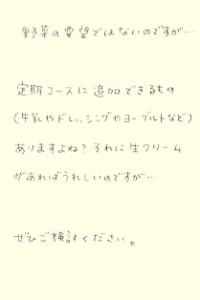 野菜の要望ではないのですが…
定期コースに追加できるもの
(牛乳やドレッシングやヨーグルトなど)
ありますよね?それに生クリーム
があればうれしいのですが…
ぜひご検討ください。